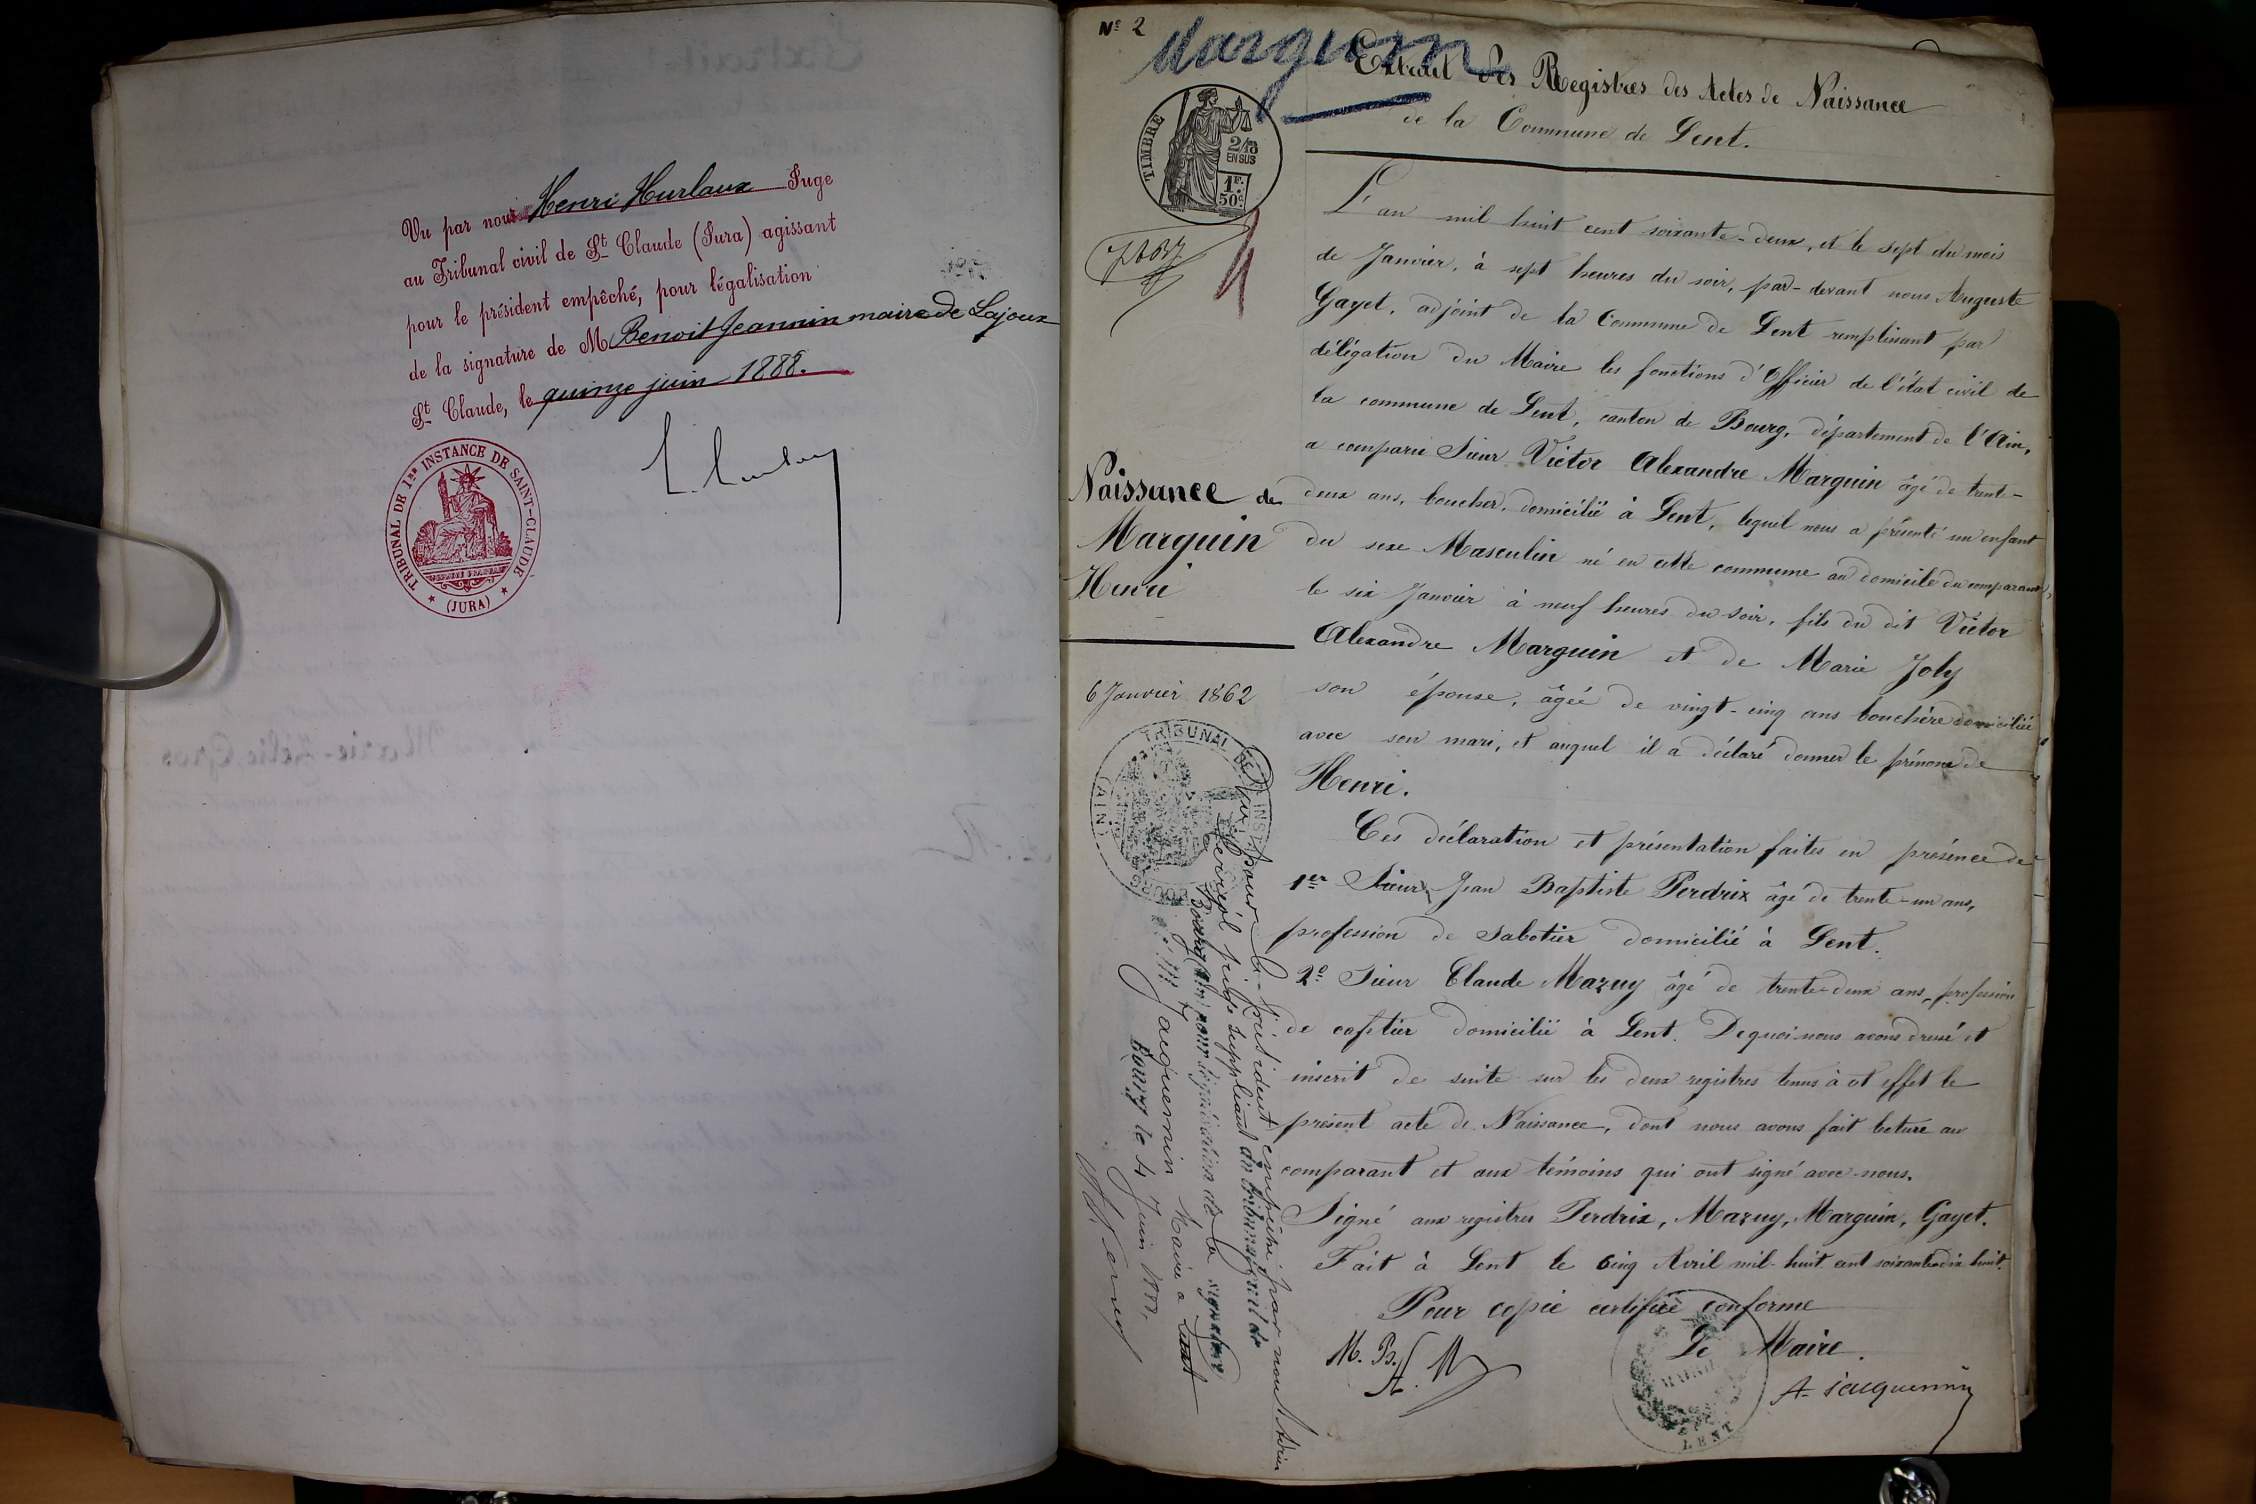 Vu par nous Henri Hurlaux Juge
au Tribunal civil de St Claude (Jura) agissant
pour le président empêché, pour légalisation
de la signature de M Benoit Jeannin maire de Lajoux
St Claude, le quinze juin 1888.
TRIBUNAL DE 1re INSTANCE DE SAINT-CLAUDE
(JURA)
No 2
Marguin
Extrait des Registres des Actes de Naissance
de la Commune de Lent.
TIMBRE
2/10
EN SUS
1F.
50c.
L'an mil huit cent soixante-deux, et le sept du mois
de Janvier, à sept heures du soir, par-devant nous Auguste
Gayet, adjoint de la Commune de Lent remplissant par
délégation du Maire les fonctions d'Officier de l'état civil de
la commune de Lent, canton de Bourg, département de l'Ain,
a comparu Sieur Victor Alexandre Marguin âgé de trente-
deux ans, boucher, domicilié à Lent, lequel nous a présenté un enfant
du sexe Masculin né en cette commune au domicile du comparant,
le six Janvier à neuf heures du soir, fils du dit Victor
Alexandre Marguin et de Marie Joly
son épouse, âgée de vingt-cinq ans bouchère domiciliée
avec son mari, et auquel il a déclaré donner le prénom de
Henri.
Naissance de
Marguin
Henri
6 Janvier 1862
Ces déclaration et présentation faites en présence de
1er Sieur Jean Baptiste Perdrix âgé de trente-un ans,
profession de Sabotier domicilié à Lent.
2o Sieur Claude Mazuy âgé de trente-deux ans, profession
de cafetier domicilié à Lent. De quoi nous avons dressé et
inscrit de suite sur les deux registres tenus à cet effet le
présent acte de Naissance, dont nous avons fait lecture au
comparant et aux témoins qui ont signé avec nous.
Signé aux registres Perdrix, Mazuy, Marguin, Gayet.
Fait à Lent le cinq Avril mil-huit cent soixante dix huit.
Pour copie certifiée conforme
Le Maire.
A. Jacquemin
MAIRIE
LENT
TRIBUNAL DE
BOURG
(AIN)
Vu, pour le président empêché, par nous Adrien
juge suppléant du tribunal civil de
Bourg (Ain) pour légalisation de la signature
de M Jacquemin Maire à Lent
Bourg le 4 Juin